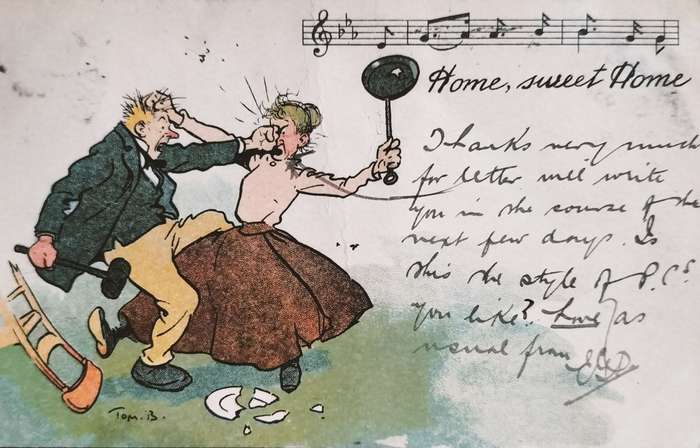 Home, sweet Home
Thanks very much
for letter will write
you in the course of the
next few days. Is
this the style of P.Cs
you like? Love as
usual from
Tom. B.